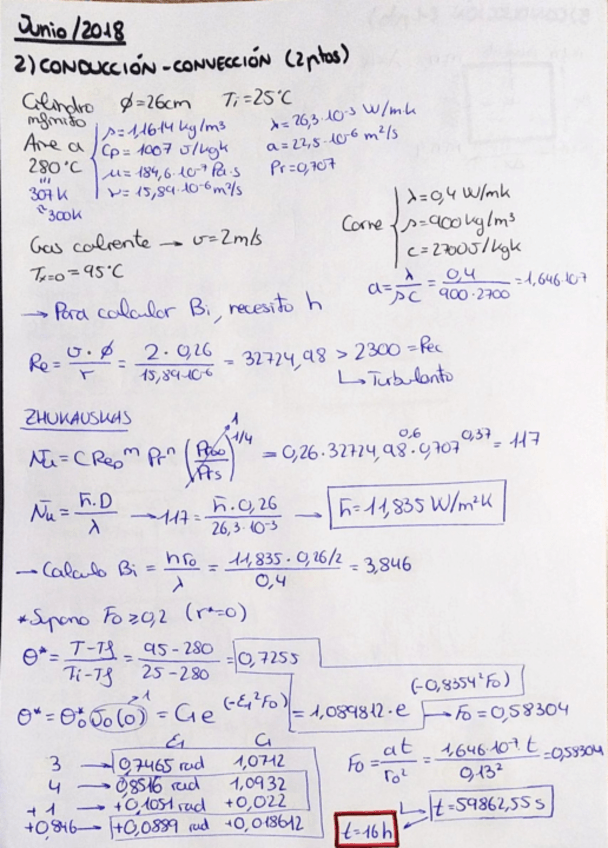 Junio/2018
2) CONDUCCIÓN - CONVECCIÓN (2ptos)
Cilindro infinito ϕ=26cm Ti=25°C
Aire a 280°C
307K
≈300K
ρ=1,1614 kg/m³
Cp=1007 J/kgK
μ=184,6·10⁻⁷ Pa·s
ν=15,89·10⁻⁶ m²/s
λ=26,3·10⁻³ W/mK
a=22,5·10⁻⁶ m²/s
Pr=0,707
Carne
λ=0,4 W/mk
ρ=900 kg/m³
c=2700 J/kgK
Gas caliente → v=2m/s
Tx=0=95°C
a = λ/ρc = 0,4/900·2700 = 1,646·10⁻⁷
→ Para calcular Bi, necesito h
Re = v·ϕ/r = 2·0,26/15,89·10⁻⁶ = 32724,98 > 2300 = Rec
↳ Turbulento
ZHUKAUSKAS
N̄u = C ReD^m Pr^n (Pr∞/Prs)^1/4 → 1 = 0,26·32724,98^0,6·0,707^0,37 = 117
N̄u = h̄·D/λ → 117 = h̄·0,26/26,3·10⁻³ → h̄=11,835 W/m²K
→ Calculo Bi = hr₀/λ = 11,835·0,26/2 / 0,4 = 3,846
*Supono Fo≥0,2 (r*=0)
θ* = T-Tf/Ti-Tf = 95-280/25-280 = 0,7255
θ* = θ*₀ J₀(0) → 1 = C₁e^(-ξ₁²Fo) = 1,089812·e^(-0,8354²Fo) → Fo=0,58304
ξ₁ C₁
3 → 0,7465 rad 1,0712
4 → 0,8516 rad 1,0932
+1 → +0,1051 rad +0,022
+0,846 → +0,0889 rad +0,018612
Fo = at/r₀² = 1,646·10⁻⁷·t/0,13² = 0,58304
↳ t=59862,55 s
t=16h